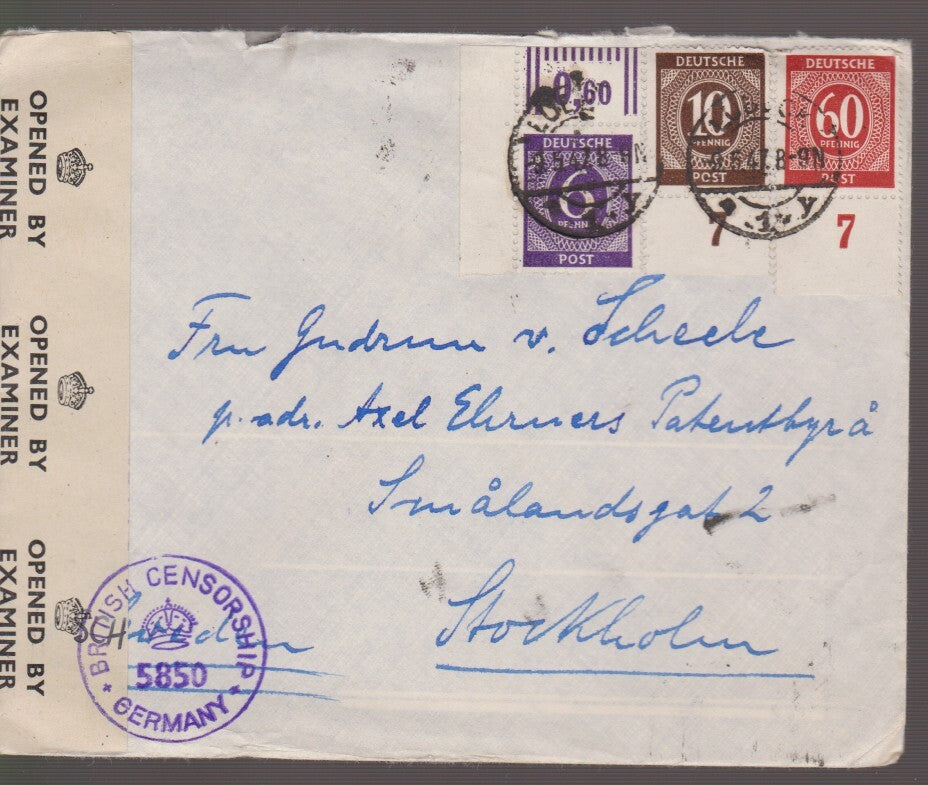 OPENED BY
EXAMINER
OPENED BY
EXAMINER
OPENED BY
EXAMINER
0,60
DEUTSCHE
6
PFENNIG
POST
DEUTSCHE
10
PFENNIG
POST
7
DEUTSCHE
60
PFENNIG
POST
7
8-9N
1 y
.6.47.8-9N
1 y
Fru Gudrun v. Scheele
p. adr. Axel Ehrners Patentbyrå
Smålandsgat 2
Stockholm
SCHweden
BRITISH CENSORSHIP
5850
GERMANY